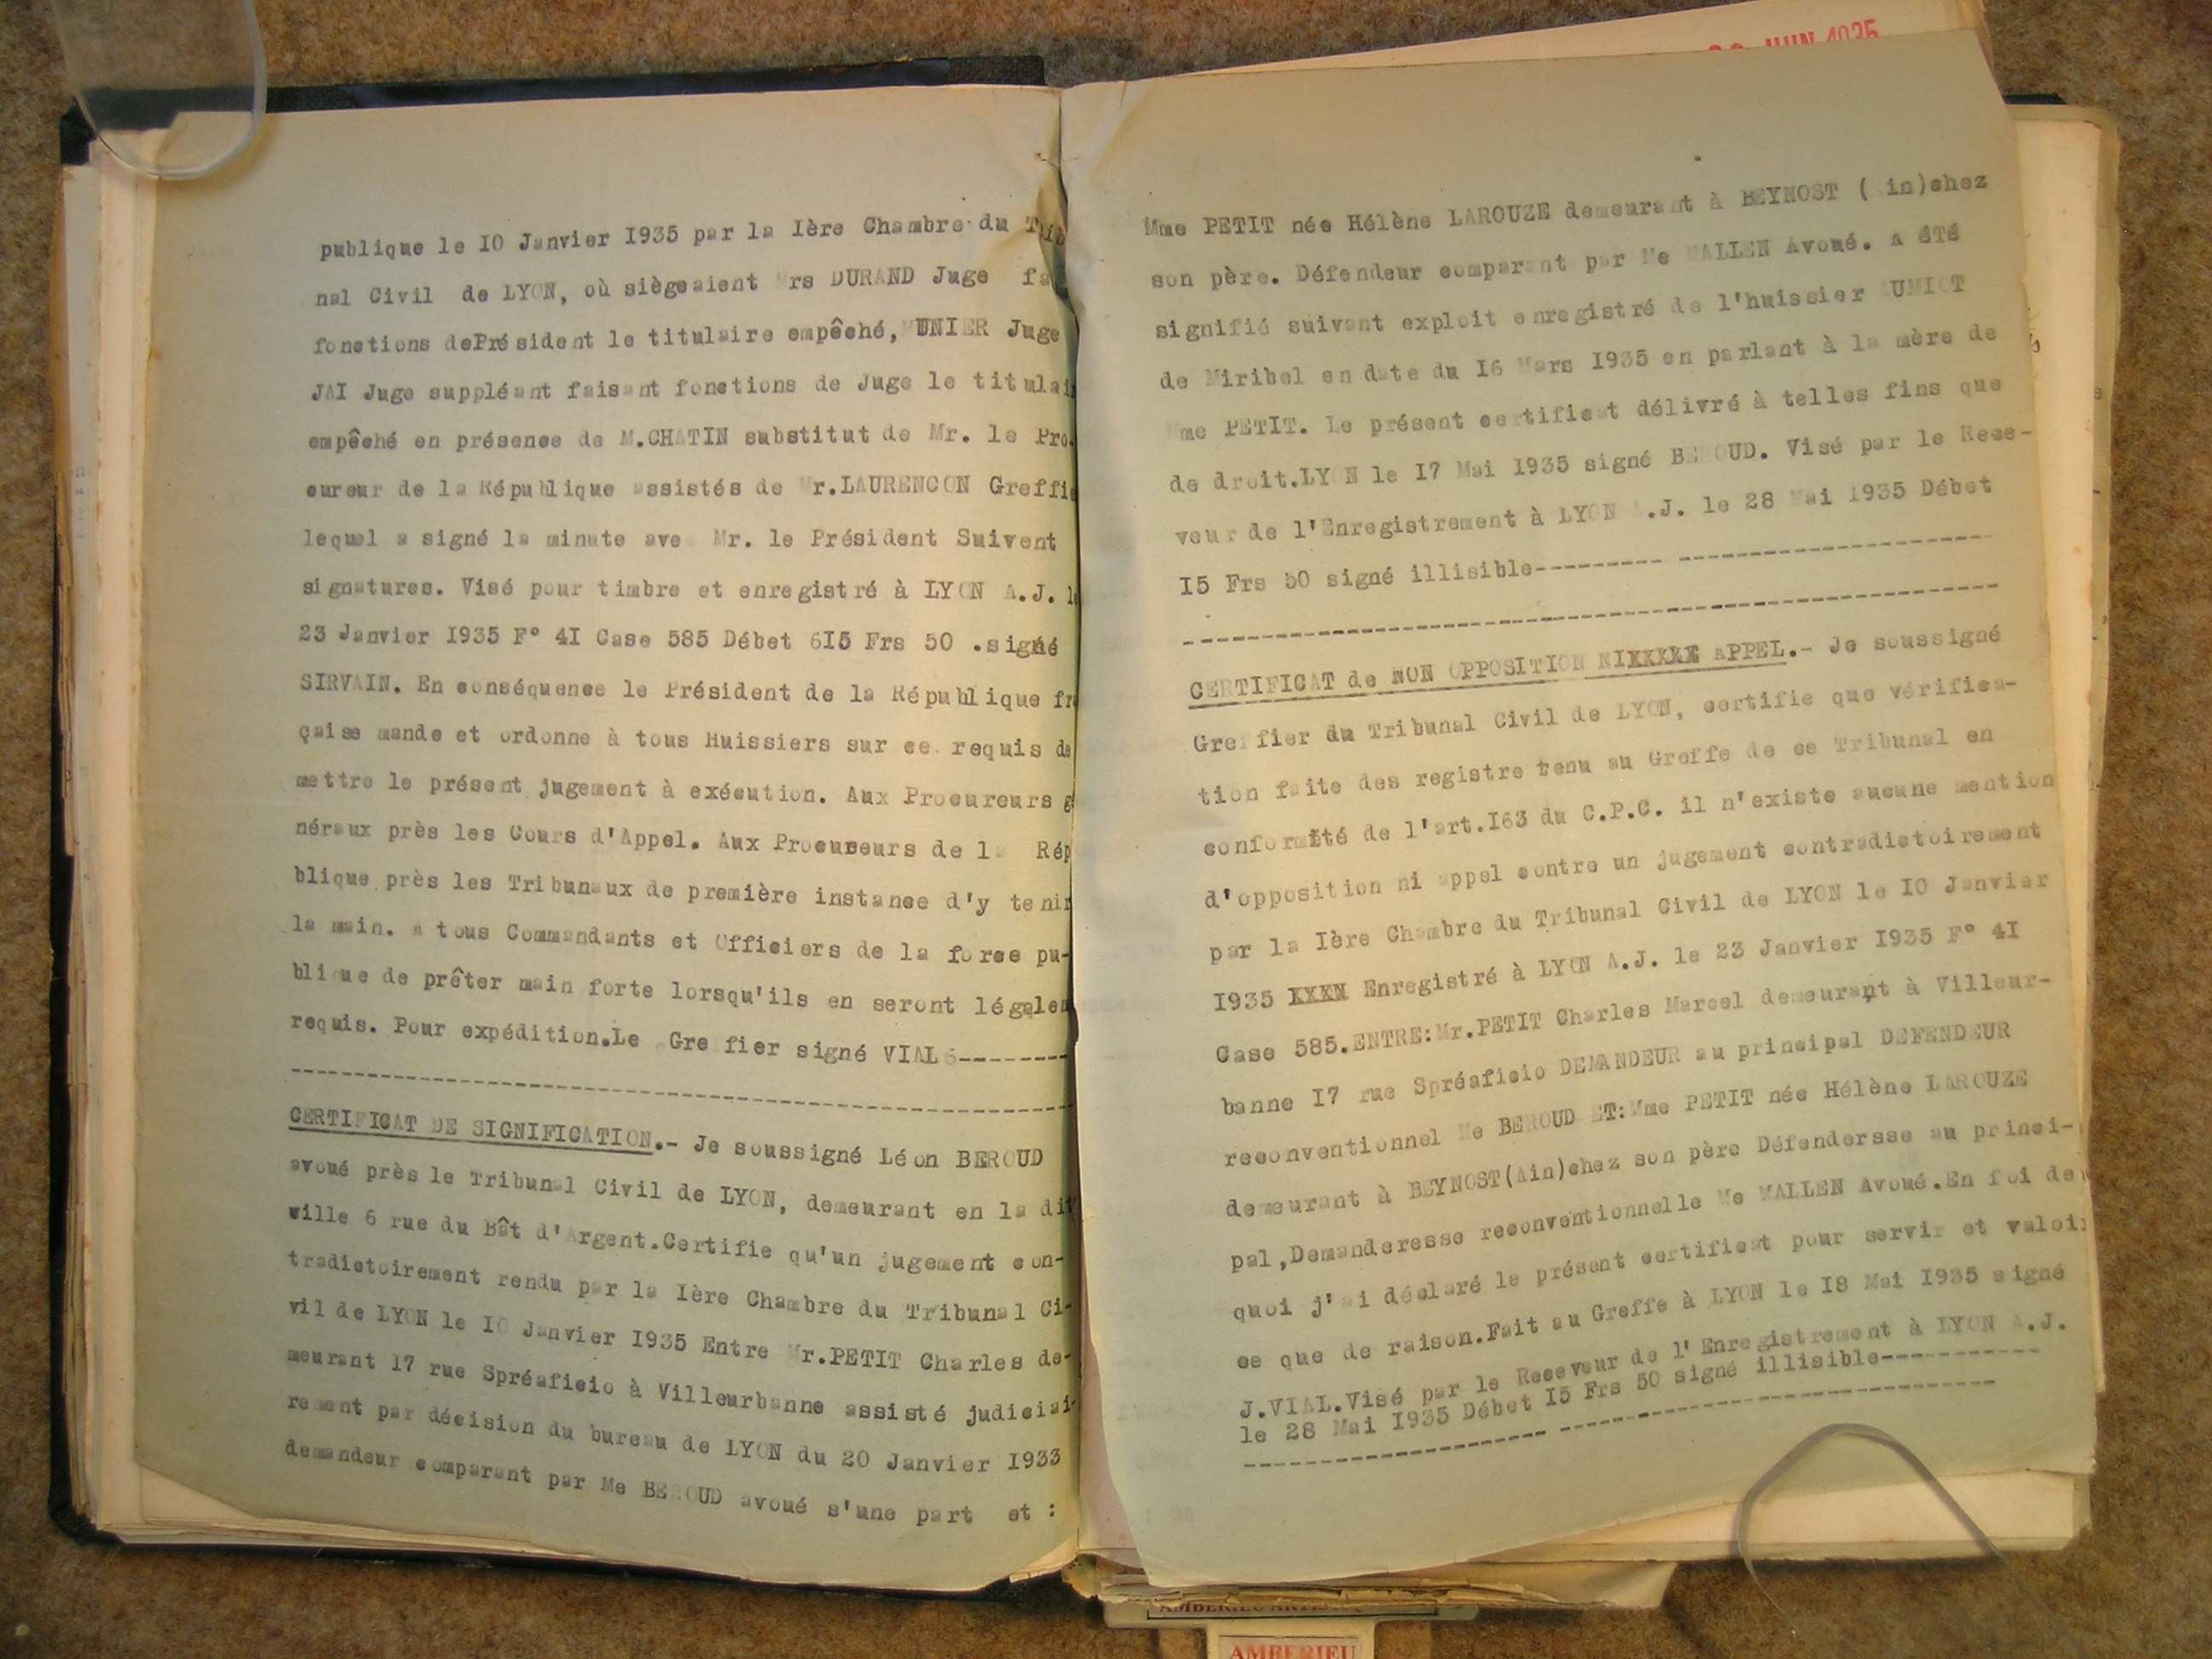 publique le I0 Janvier I935 par la Ière Chambre du Trib
nal Civil de LYON, où siègeaient Mrs DURAND Juge fa
fonctions dePrésident le titulaire empêché, MUNIER Juge
JAI Juge suppléant faisant fonctions de Juge le titulair
empêché en présence de M.CHATIN substitut de Mr. le Pro
cureur de la République assistés de Mr.LAURENCON Greffie
lequel a signé la minute ave Mr. le Président Suivent
signatures. Visé pour timbre et enregistré à LYON A.J. le
23 Janvier I935 F° 4I Case 585 Débet 6I5 Frs 50 .signé
SIRVAIN. En conséquence le Président de la République fra
çaise mande et ordonne à tous Huissiers sur ce requis de
mettre le présent jugement à exécution. Aux Procureurs g
néraux près les Cours d'Appel. Aux Procureurs de la Rép
blique près les Tribunaux de première instance d'y tenir
la main. A tous Commandants et Officiers de la force pu-
blique de prêter main forte lorsqu'ils en seront légalem
requis. Pour expédition.Le Greffier signé VIAL6--------
------------------------------------------------
CERTIFICAT DE SIGNIFICATION.- Je soussigné Léon BEROUD
avoué près le Tribunal Civil de LYON, demeurant en la dit
ville 6 rue du Bât d'Argent.Certifie qu'un jugement con-
tradictoirement rendu par la Ière Chambre du Tribunal Ci-
vil de LYON le I0 Janvier I935 Entre Mr.PETIT Charles de-
meurant I7 rue Spréaficio à Villeurbanne assisté judiciai-
rement par décision du bureau de LYON du 20 Janvier I933
demandeur comparant par Me BEROUD avoué s'une part et :
Mme PETIT née Hélène LAROUZE demeurant à BEYNOST ( in)chez
son père. Défendeur comparant par Me MALLEN Avoué. A éTé
signifié suivant exploit enregistré de l'huissier UMIOT
de Miribel en date du I6 Mars I935 en parlant à la mère de
Mme PETIT. Le présent certificat délivré à telles fins que
de droit.LYON le I7 Mai I935 signé BEROUD. Visé par le Rece-
veur de l'Enregistrement à LYON A.J. le 28 Mai I935 Débet
I5 Frs 50 signé illisible--------- ----------------------
------------------------------------------------
CERTIFICAT de NON OPPOSITION NIXXXXX APPEL.- Je soussigné
Greffier du Tribunal Civil de LYON, certifie que vérifica-
tion faite des registre tenu au Greffe de ce Tribunal en
conformité de l'art.I63 du C.P.C. il n'existe aucune mention
d'opposition ni appel contre un jugement contradictoirement
par la Ière Chambre du Tribunal Civil de LYON le I0 Janvier
I935 XXXX Enregistré à LYON A.J. le 23 Janvier I935 F° 4I
Case 585.ENTRE:Mr.PETIT Charles Marcel demeurant à Villeur-
banne I7 rue Spréaficio DEMANDEUR au principal DEFENDEUR
reconventionnel Me BEROUD ET:Mme PETIT née Hélène LAROUZE
demeurant à BEYNOST(Ain)chez son père Défendersse au princi-
pal,Demanderesse reconventionnelle Me MALLEN Avoué.En foi de
quoi j'ai déclaré le présent certificat pour servir et valoir
ce que de raison.Fait au Greffe à LYON le I8 Mai I935 signé
J.VIAL.Visé par le Receveur de l'Enregistrement à LYON A.J.
le 28 Mai I935 Débet I5 Frs 50 signé illisible-----------
-------------------- -----------------------------
JUIN 1935
AMBERIEU